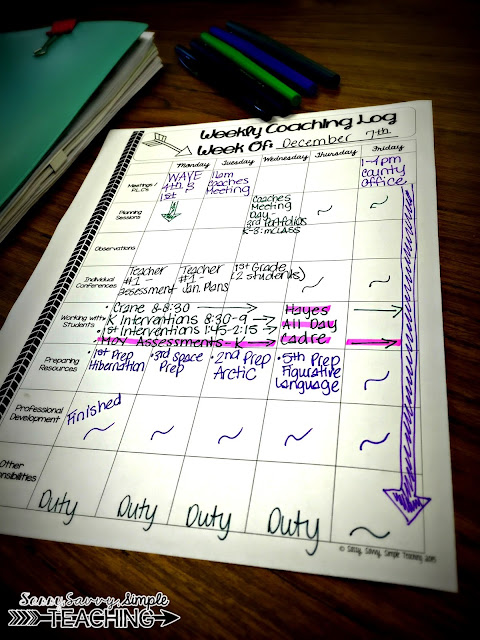 Weekly Coaching Log
Week Of: December 7th
Monday Tuesday Wednesday Thursday Friday
Meetings /
PLC's
WAVE
4th B
1st
Coaches
Meeting
1-4pm
County
Office
Planning
Sessions
Coaches
Meeting
Day -
3rd Portfolios
K-3: mCLASS
~
~
Observations
Individual
Conferences
Teacher
#1 -
assessment
Teacher
#1 -
Jan Plans
1st Grade
(2 students)
~
~
Working with
Students
• Crane 8-8:30
• K Interventions 8:30-9
• 1st Interventions 1:45-2:15
• MOY Assessments - K
Hayes
All Day
Cadre
Preparing
Resources
• 1st Prep
Hibernation
• 3rd Space
Prep
• 2nd Prep
Arctic
• 5th Prep
Figurative
Language
~
Professional
Development
Finished
~
~
~
~
~
Other
Duty
Duty
Duty
Duty
~
© Sassy, Savvy, Simple Teaching 2015
Sassy, Savvy, Simple
TEACHING